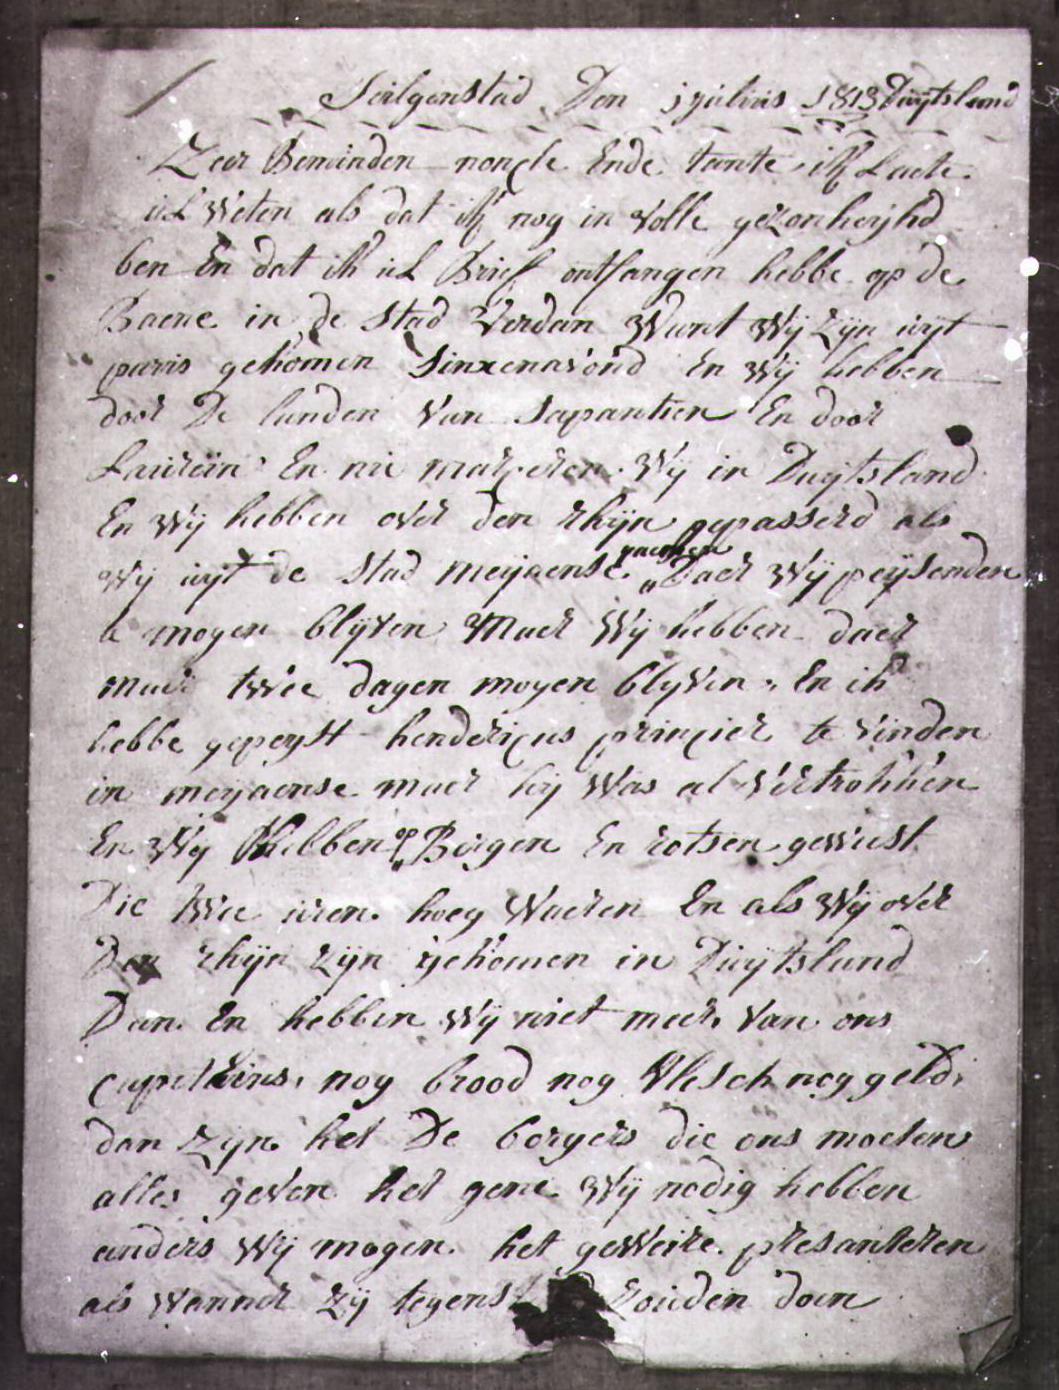 Seilgenstad Den j julius 1813 Duijtsland
Zeer Beminden noncle Ende tante ik Laete
ul Weten als dat ik nog in volle gezonheijhd
ben En dat ik ul Brief ontfangen hebbe op de
Baene in de stad Verdun Want Wij zijn uijt
paris gekomen Sinxenavond En wij hebben
door De landen van Sapantien En door
Laurein En nu marcheren Wij in Duijtsland
En Wij hebben over den rhijn gepasserd als
wij uijt de stad meijaense quamen Daer Wij peijsenden
te mogen blijven Maer Wij hebben daer
maer twee dagen mogen blyven En ik
hebbe gepeyst hendericus princier te vinden
in meijaense maer hij Was al Vertrokken
En Wij hebben op Bergen En rotsen geweest
Die twee uren hoog Waeren En als Wij over
Den rhijn zijn gekomen in Duijtsland
Dan En hebben Wij niet meer Van ons
capiteins nog brood nog Vlesch nog geld
dan zijn het De borgers die ons moeten
alles geven het gene Wij nodig hebben
anders Wij mogen het geweire presanteren
als wanner zij tegenst zouden doen